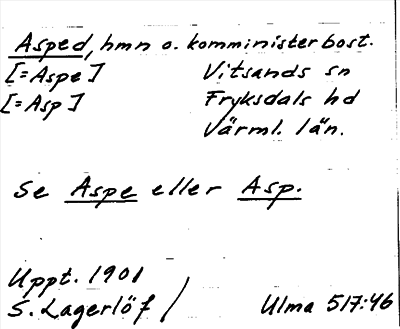 Asped, hmn o. komministerbost.
[=Aspe] Vitsands sn
[=Asp] Fryksdals hd
Värml. län.
Se Aspe eller Asp.
Uppt. 1901
S. Lagerlöf / Ulma 517:46